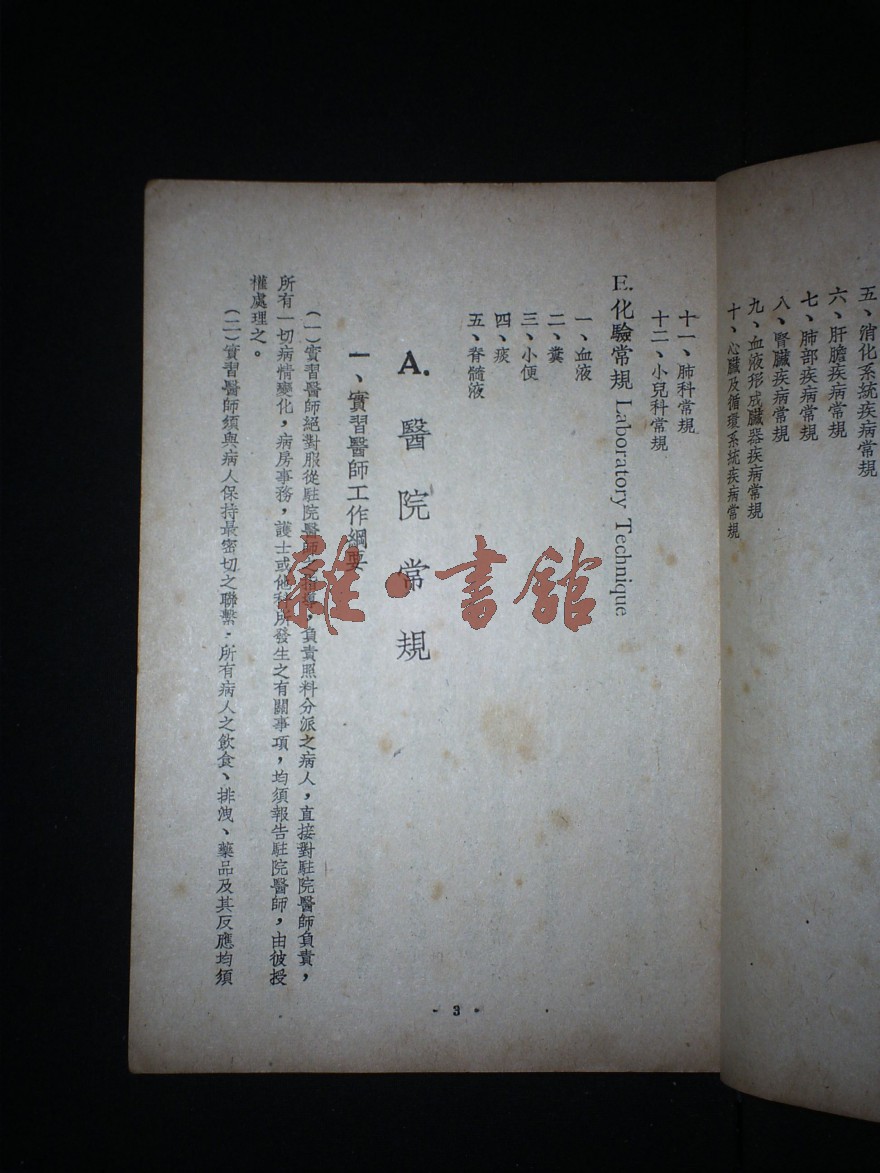 五、消化系統疾病常規
六、肝膽疾病常規
七、肺部疾病常規
八、腎臟疾病常規
九、血液形成臟器疾病常規
十、心臟及循環系統疾病常規
十一、肺科常規
十二、小兒科常規
E. 化驗常規 Laboratory Technique
一、血液
二、糞
三、小便
四、痰
五、脊髓液
A. 醫院常規
一、實習醫師工作綱要
（一）實習醫師絕對服從駐院醫師之指導，負責照料分派之病人，直接對駐院醫師負責，
所有一切病情變化，病房事務，護士或他科所發生之有關事項，均須報告駐院醫師，由彼授
權處理之。
（二）實習醫師須與病人保持最密切之聯繫．所有病人之飲食、排洩、藥品及其反應均須
· 3 ·
雜·書館